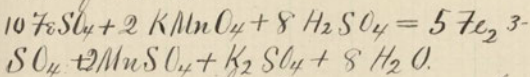 10 FeSO4 + 2 KMnO4 + 8 H2SO4 = 5 Fe2 3-
SO4 + 2MnSO4 + K2SO4 + 8 H2O.